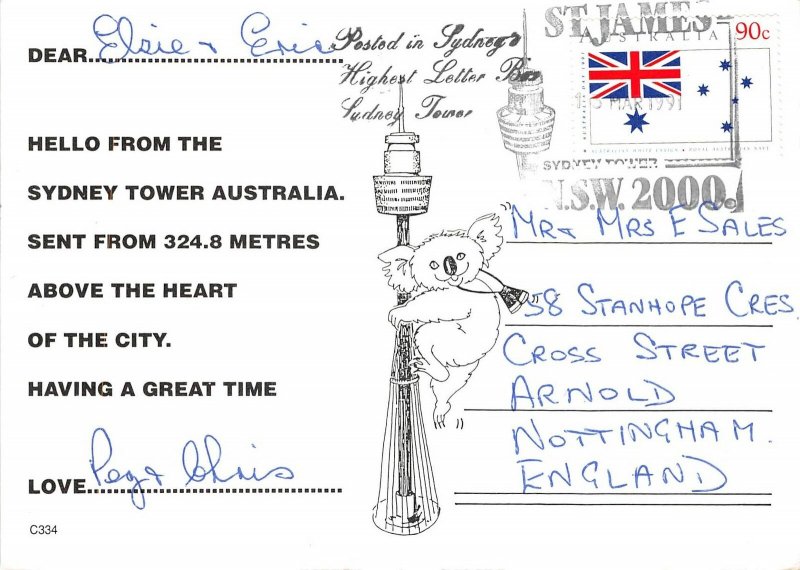 DEAR Elsie + Eric
HELLO FROM THE
SYDNEY TOWER AUSTRALIA.
SENT FROM 324.8 METRES
ABOVE THE HEART
OF THE CITY.
HAVING A GREAT TIME
LOVE Peg + Chris
C334
Posted in Sydney's
Highest Letter Box
Sydney Tower
ST. JAMES
AUSTRALIA 90c
MAR 1991
AUSTRALIAN WHITE ENSIGN • ROYAL AUSTRALIAN NAVY
SYDNEY TOWER
N.S.W. 2000.
MR + MRS E SALES
58 STANHOPE CRES
CROSS STREET
ARNOLD
NOTTINGHAM.
ENGLAND